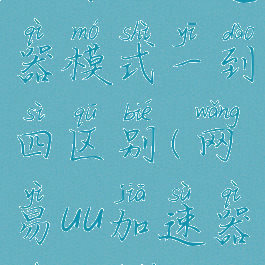 qì mó shì yī dào
器模式一到
sì qū bié wǎng
四区别(网
yì jiā sù qì
易uu加速器